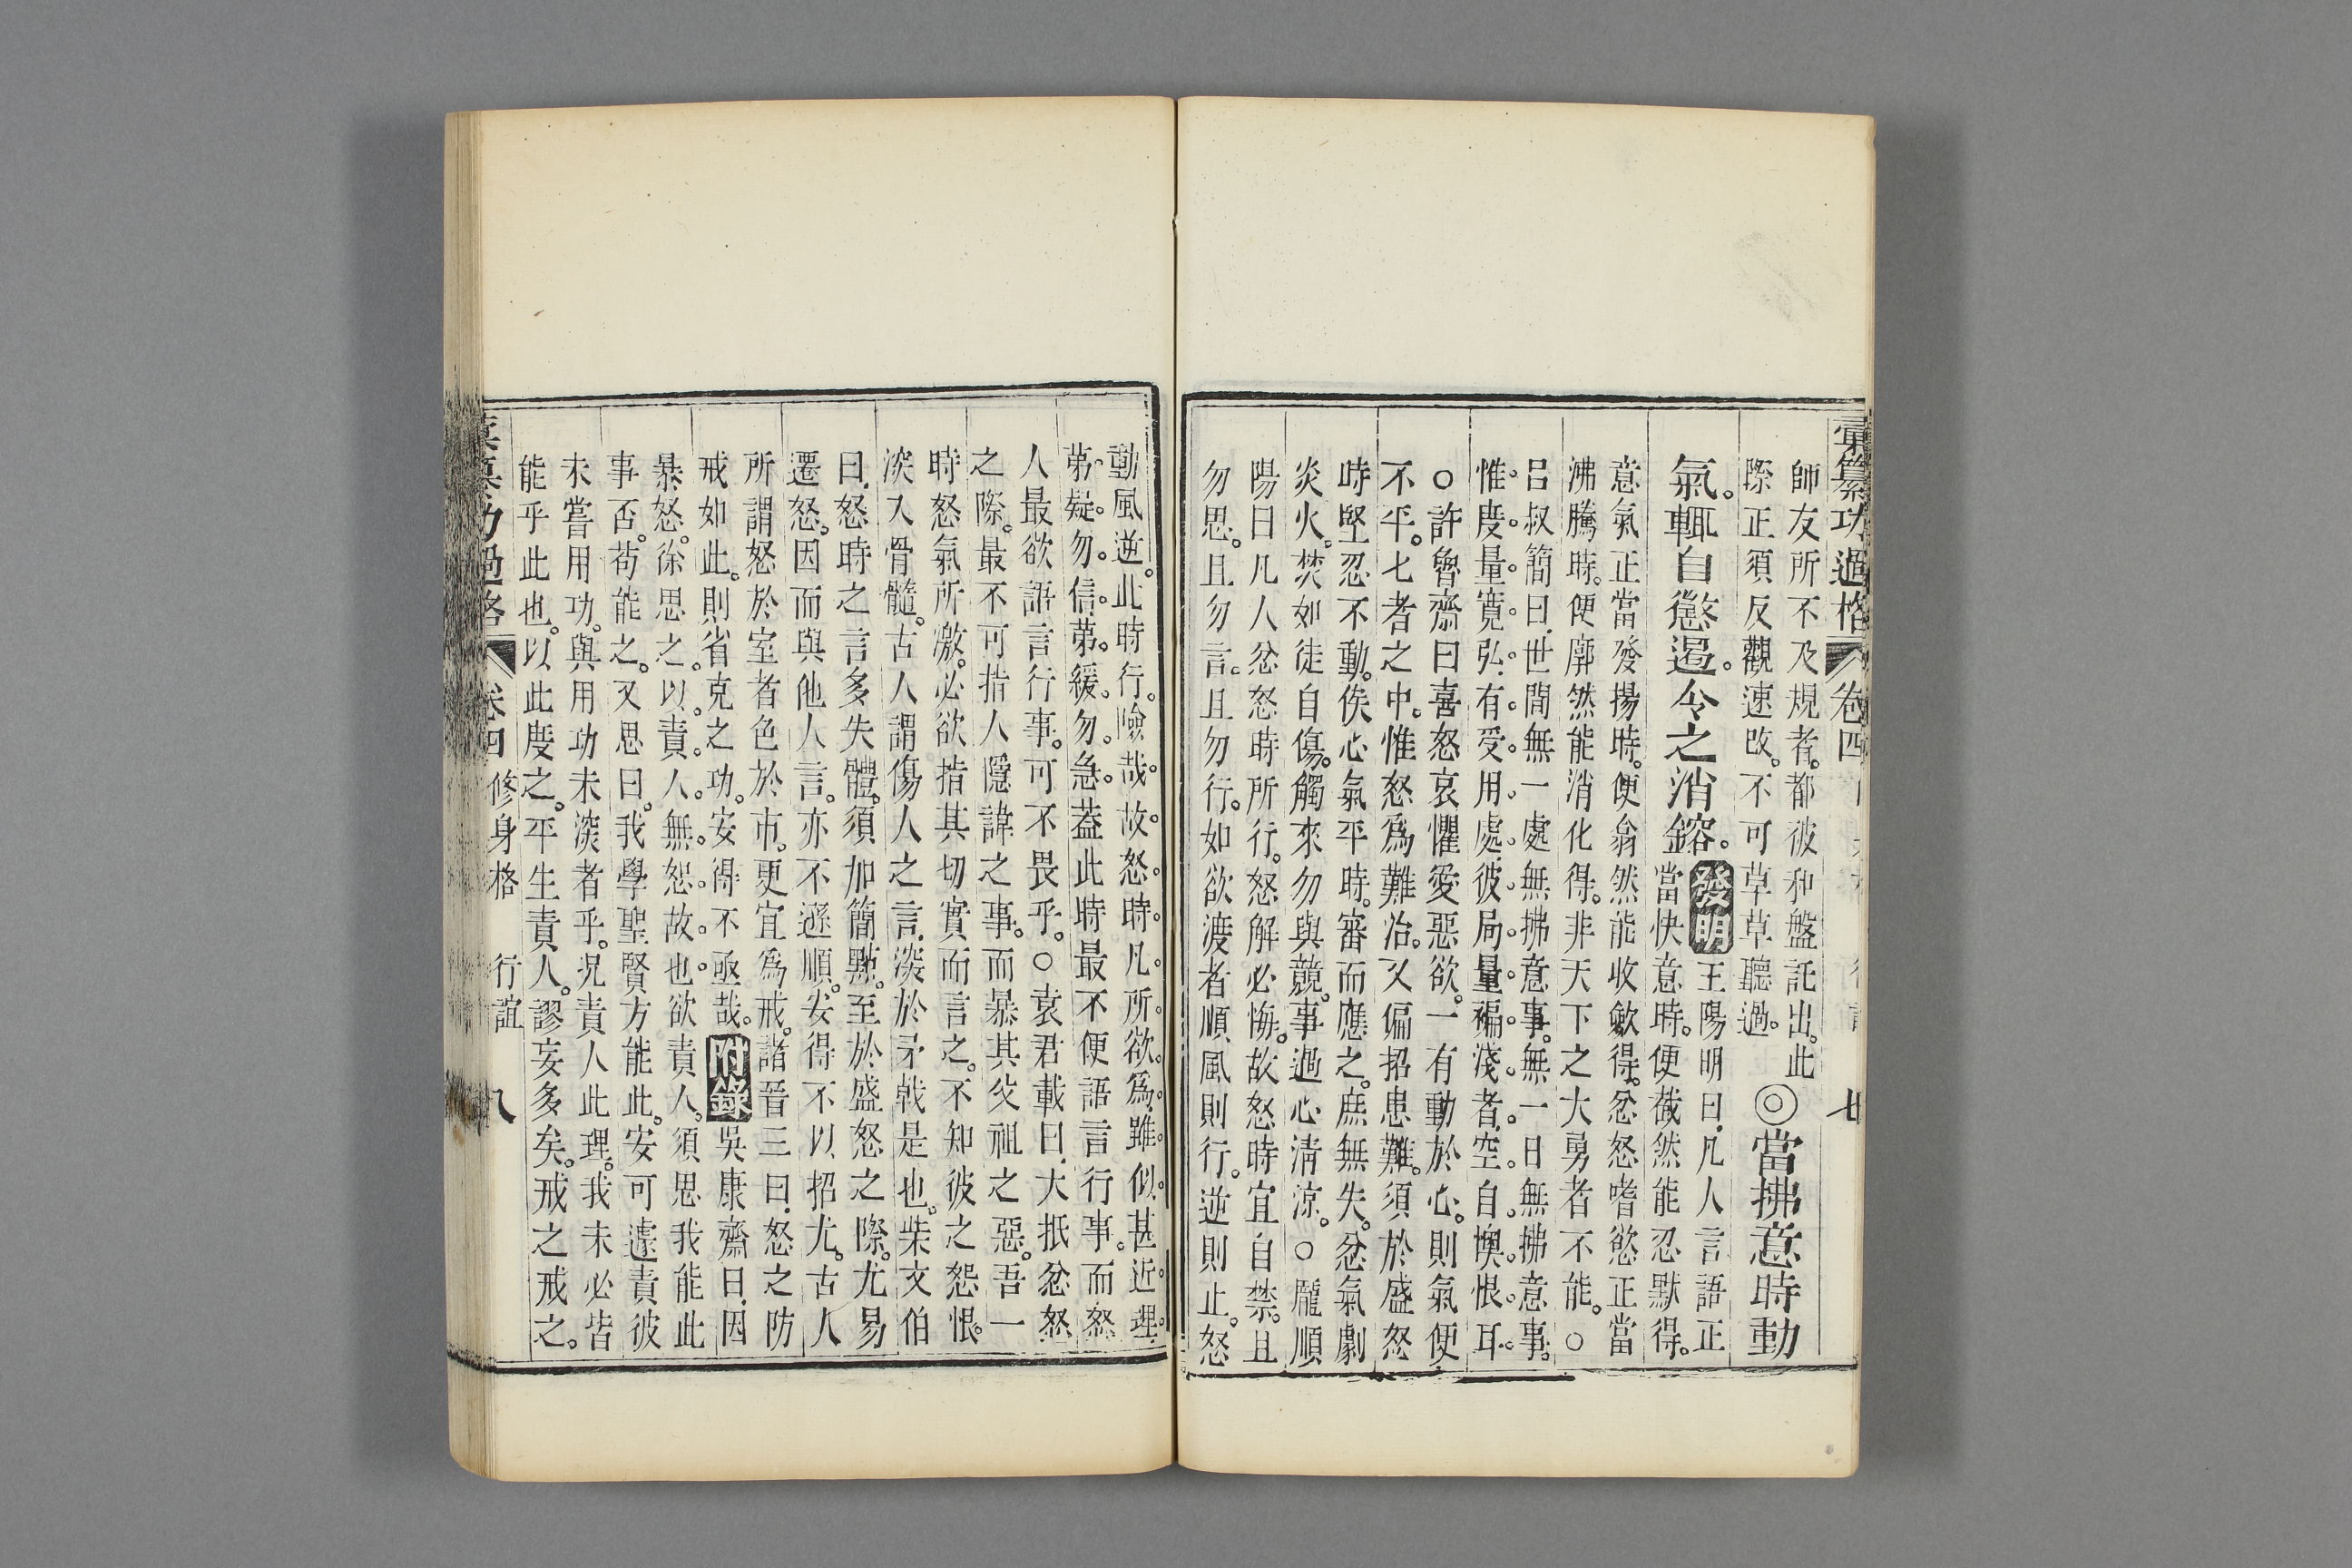 彙纂功過格 卷四 七
師友所不及規者。都彼和盤託出。此
際正須反觀速改。不可草草聽過。
◎當拂意時動
氣。輒自懲遏。令之消鎔。
發明 王陽明曰。凡人言語正
當快意時。便截然能忍默得。
意氣正當發揚時。便翕然能收斂得。忿怒嗜慾正當
沸騰時。便廓然能消化得。非天下之大勇者不能。○
呂叔簡曰。世間無一處無拂意事。無一日無拂意事。
惟度量寬弘。有受用處。彼局量褊淺者。空自懊恨耳。
○許魯齋曰喜怒哀懼愛惡欲。一有動於心。則氣便
不平。七者之中。惟怒為難治。又偏招患難。須於盛怒
時堅忍不動。俟心氣平時。審而應之。庶無失。忿氣劇
炎火。焚如徒自傷。觸來勿與競。事過心清涼。○龐順
陽曰凡人忿怒時所行。怒解必悔。故怒時宜自禁。且
勿思。且勿言。且勿行。如欲渡者順風則行。逆則止。怒
動風逆。此時行。險哉。故怒時。凡所欲為。雖似甚近理。
第疑勿信。第緩勿急。葢此時最不便語言行事。而怒
人最欲語言行事。可不畏乎。○袁君載曰。大抵忿怒
之際。最不可指人隱諱之事。而暴其父祖之惡。吾一
時怒氣所激。必欲指其切實而言之。不知彼之怨恨。
深入骨髓。古人謂傷人之言。深於矛戟是也。柴文伯
曰。怒時之言多失體。須加簡點。至於盛怒之際。尤易
遷怒。因而與他人言。亦不遜順。安得不以招尤。古人
所謂怒於室者色於市。更宜為戒。諸晉三曰。怒之防
戒如此。則省克之功。安得不亟哉。附錄 吳康齋曰。因
暴怒。徐思之。以責人無恕故也欲責人。須思我能此
事否。苟能之。又思曰。我學聖賢方能此。安可遽責彼
未嘗用功。與用功未深者乎。況責人此理。我未必皆
能乎此也。以此度之。平生責人。謬妄多矣。戒之戒之。
卷四 修身格 行誼 八